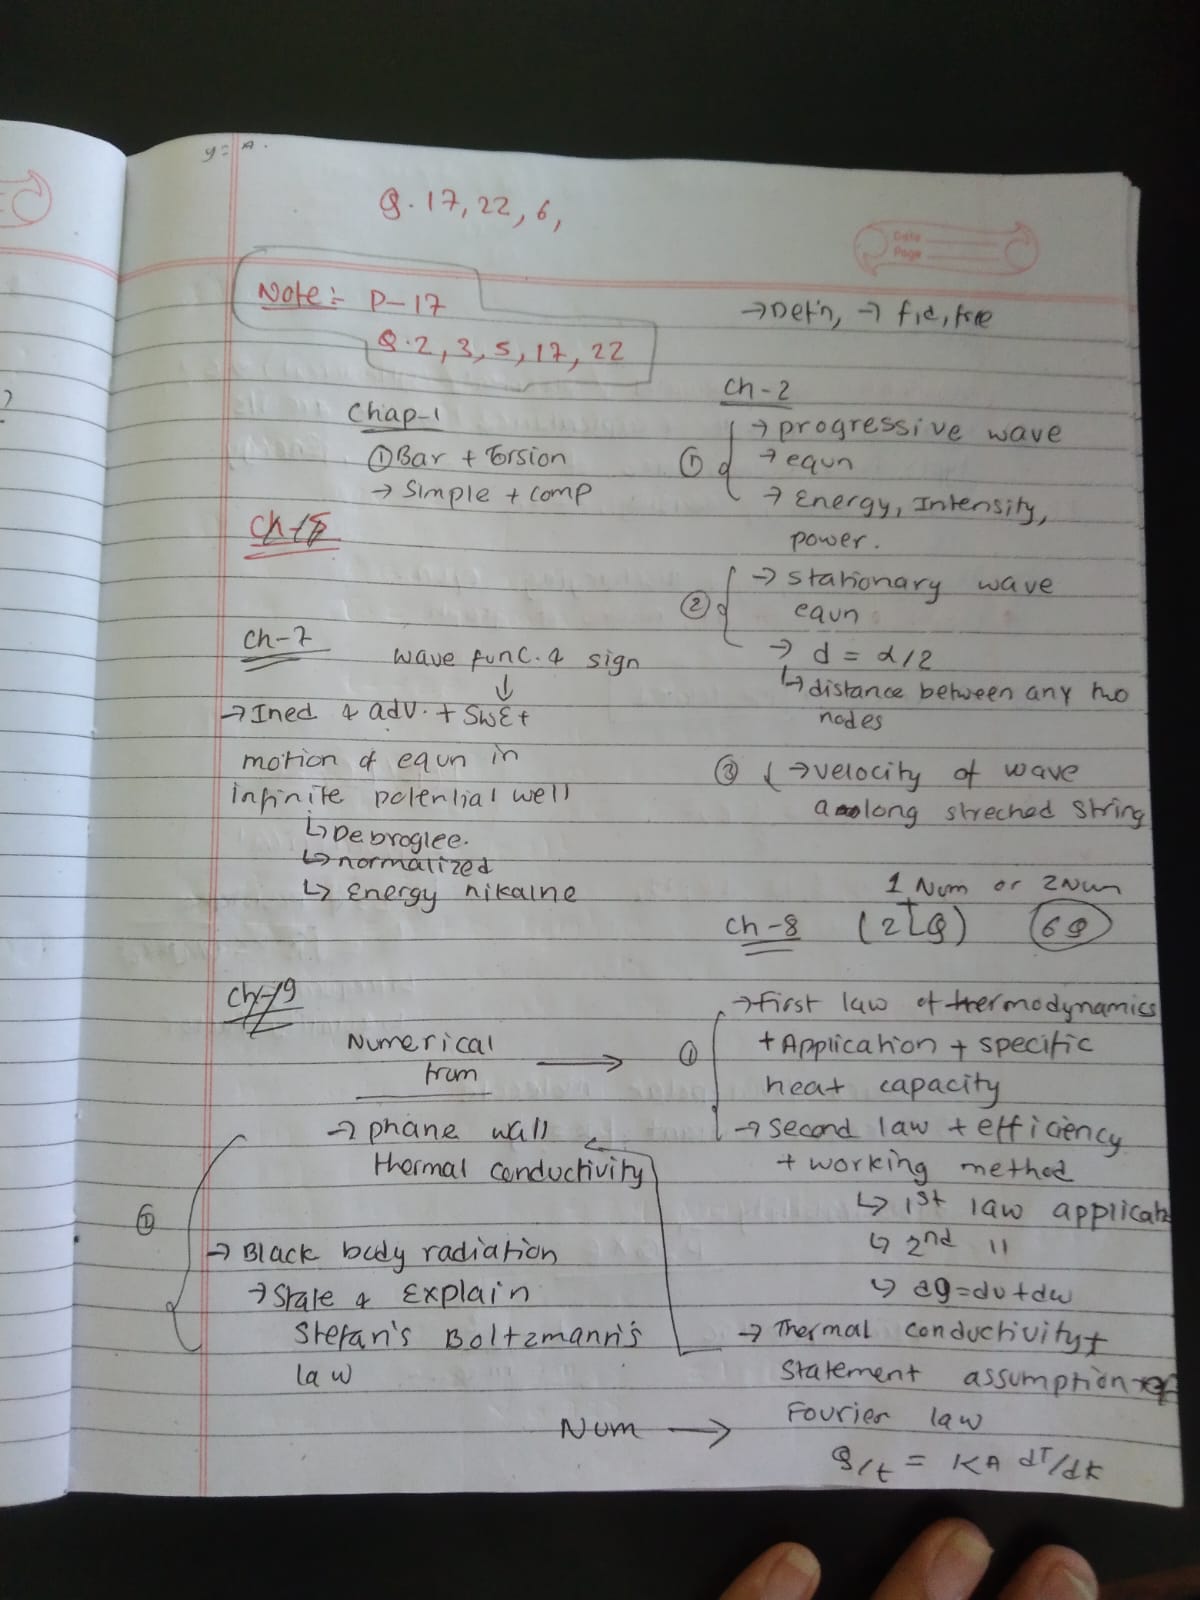 y= A.
Q. 17, 22, 6,
Date
Page
Note:- P-17
Q.2, 3, 5, 17, 22
→Defn, →
Chap-1
①Bar + Torsion
→ Simple + comp
Ch-7
wave func. & sign
↓
→ & adv. + SWE +
motion of equn in
infinite potential well
↳Debroglee.
↳normalized
↳ Energy nikalne
Numerical
from
→ phane wall
thermal conductivity
①
→ Black body radiation
→State & Explain
Stefan's Boltzmann's
law
Num →
Ch-2
① → progressive wave
→ equn
→ Energy, Intensity,
power.
② → stationary wave
equn
→ d = λ/2
↳distance between any two
nodes
③ →velocity of wave
along streched string
1 Num or 2Num
Ch-8 (2LQ) 6Q
① →First law of thermodynamics
+ Application + specific
heat capacity
→ Second law + efficiency
+ working method
↳ 1st law
↳ 2nd 11
↳ dq=du+dw
→ Thermal conductivity+
Statement assumption of
Fourier law
Q/t = KA dT/dx